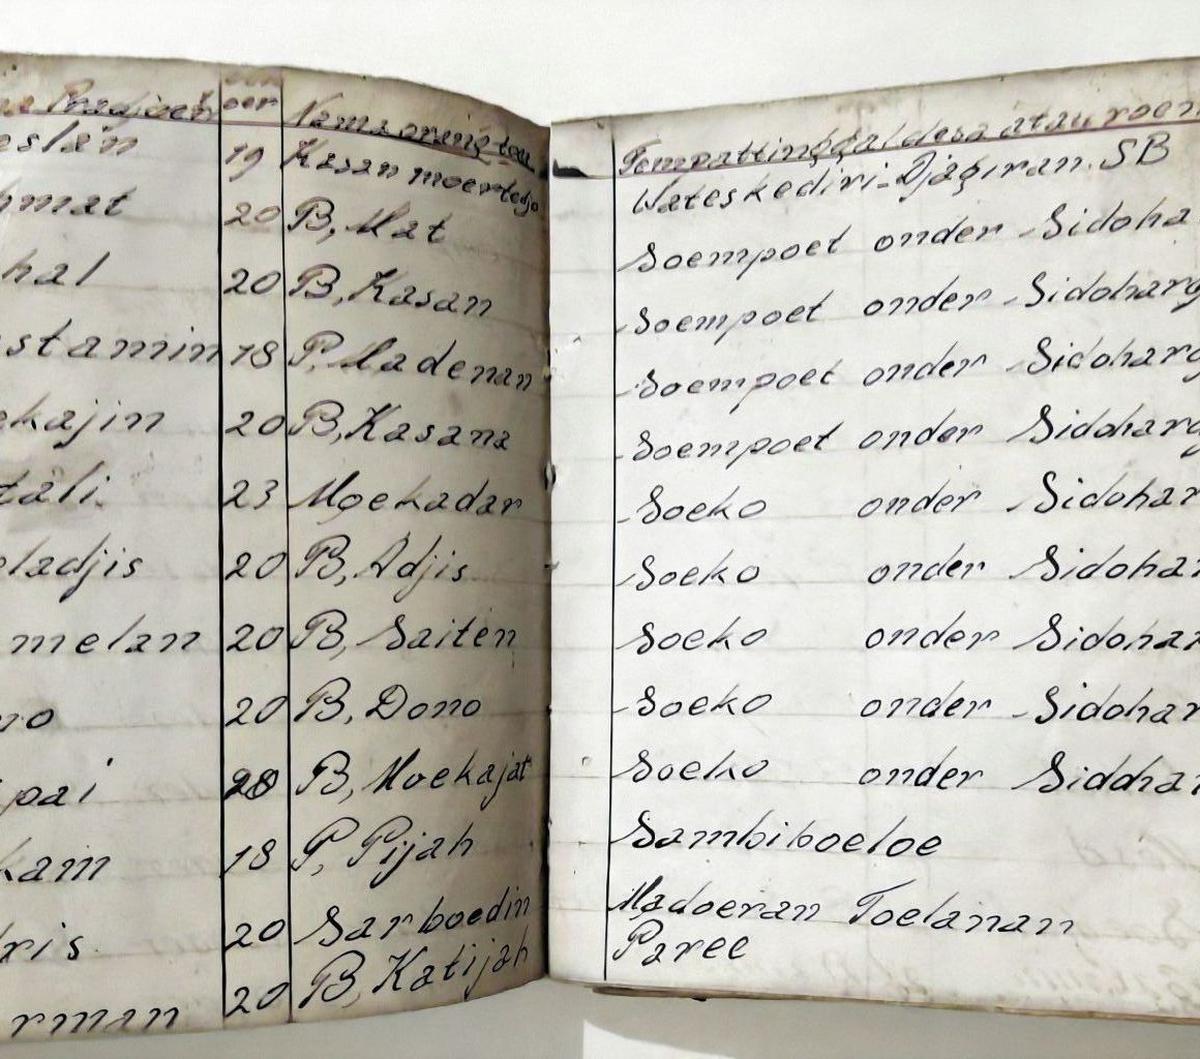 oer Nama orang toea Tempat tinggal desa atau roem
19 Kasan moertedjo Wates kediri-Djagiran. SB
hmat 20 B, Mat Soempoet onder Sidoha
hal 20 B, Kasan Soempoet onder Sidoharg
stamin 18 P, Madenan Soempoet onder Sidoharg
ekajin 20 B, Kasana Soempoet onder Sidoharg
tali. 23 Moekadar Soeko onder Sidohar
eladjis 20 B, Adjis. Soeko onder Sidohar
melan 20 B, Saiten Soeko onder Sidohar
no 20 B, Dono Soeko onder Sidohar
pai 20 B, Moekajat Soeko onder Sidohar
kam 18 P, Pijah Sambiboeloe
dris. 20 Sarboedin Madoeran Toelanan
rman 20 B, Katijah Paree